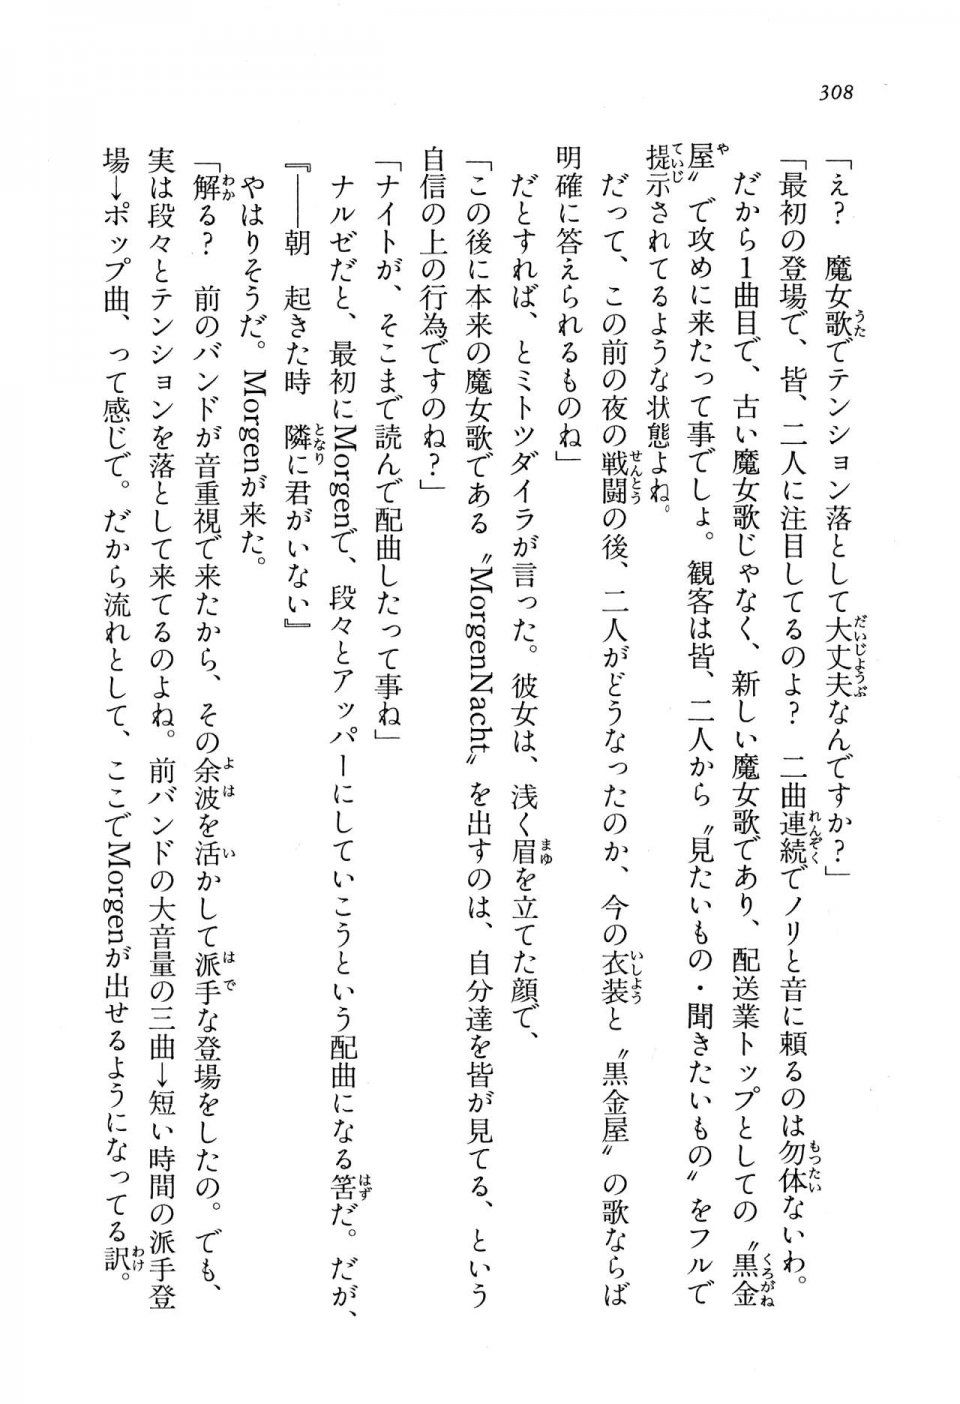 308
「え？　魔女歌でテンション落として大丈夫なんですか？」
「最初の登場で、皆、二人に注目してるのよ？　二曲連続でノリと音に頼るのは勿体ないわ。
だから1曲目で、古い魔女歌じゃなく、新しい魔女歌であり、配送業トップとしての〝黒金
屋〟で攻めに来たって事でしょ。観客は皆、二人から〝見たいもの・聞きたいもの〟をフルで
提示されてるような状態よね。
だって、この前の夜の戦闘の後、二人がどうなったのか、今の衣装と〝黒金屋〟の歌ならば
明確に答えられるものね」
だとすれば、とミトツダイラが言った。彼女は、浅く眉を立てた顔で、
「この後に本来の魔女歌である〝MorgenNacht〟を出すのは、自分達を皆が見てる、という
自信の上の行為ですのね？」
「ナイトが、そこまで読んで配曲したって事ね」
ナルゼだと、最初にMorgenで、段々とアッパーにしていこうという配曲になる筈だ。だが、
『――朝　起きた時　隣に君がいない』
やはりそうだ。Morgenが来た。
「解る？　前のバンドが音重視で来たから、その余波を活かして派手な登場をしたの。でも、
実は段々とテンションを落として来てるのよね。前バンドの大音量の三曲→短い時間の派手登
場→ポップ曲、って感じで。だから流れとして、ここでMorgenが出せるようになってる訳。